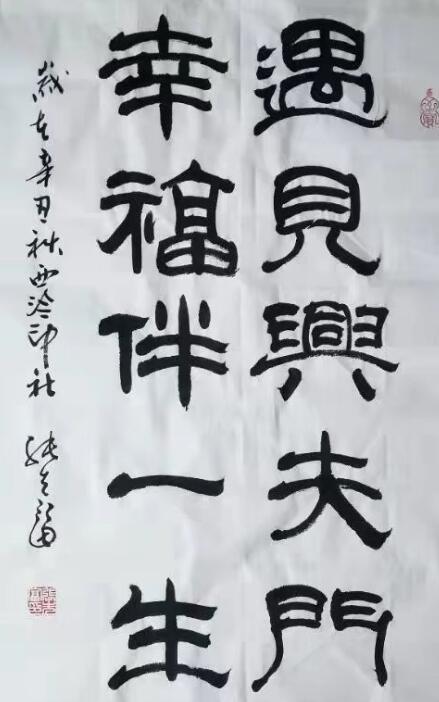 遇見興夫門
幸福伴一生
歲在辛丑秋西泠印社